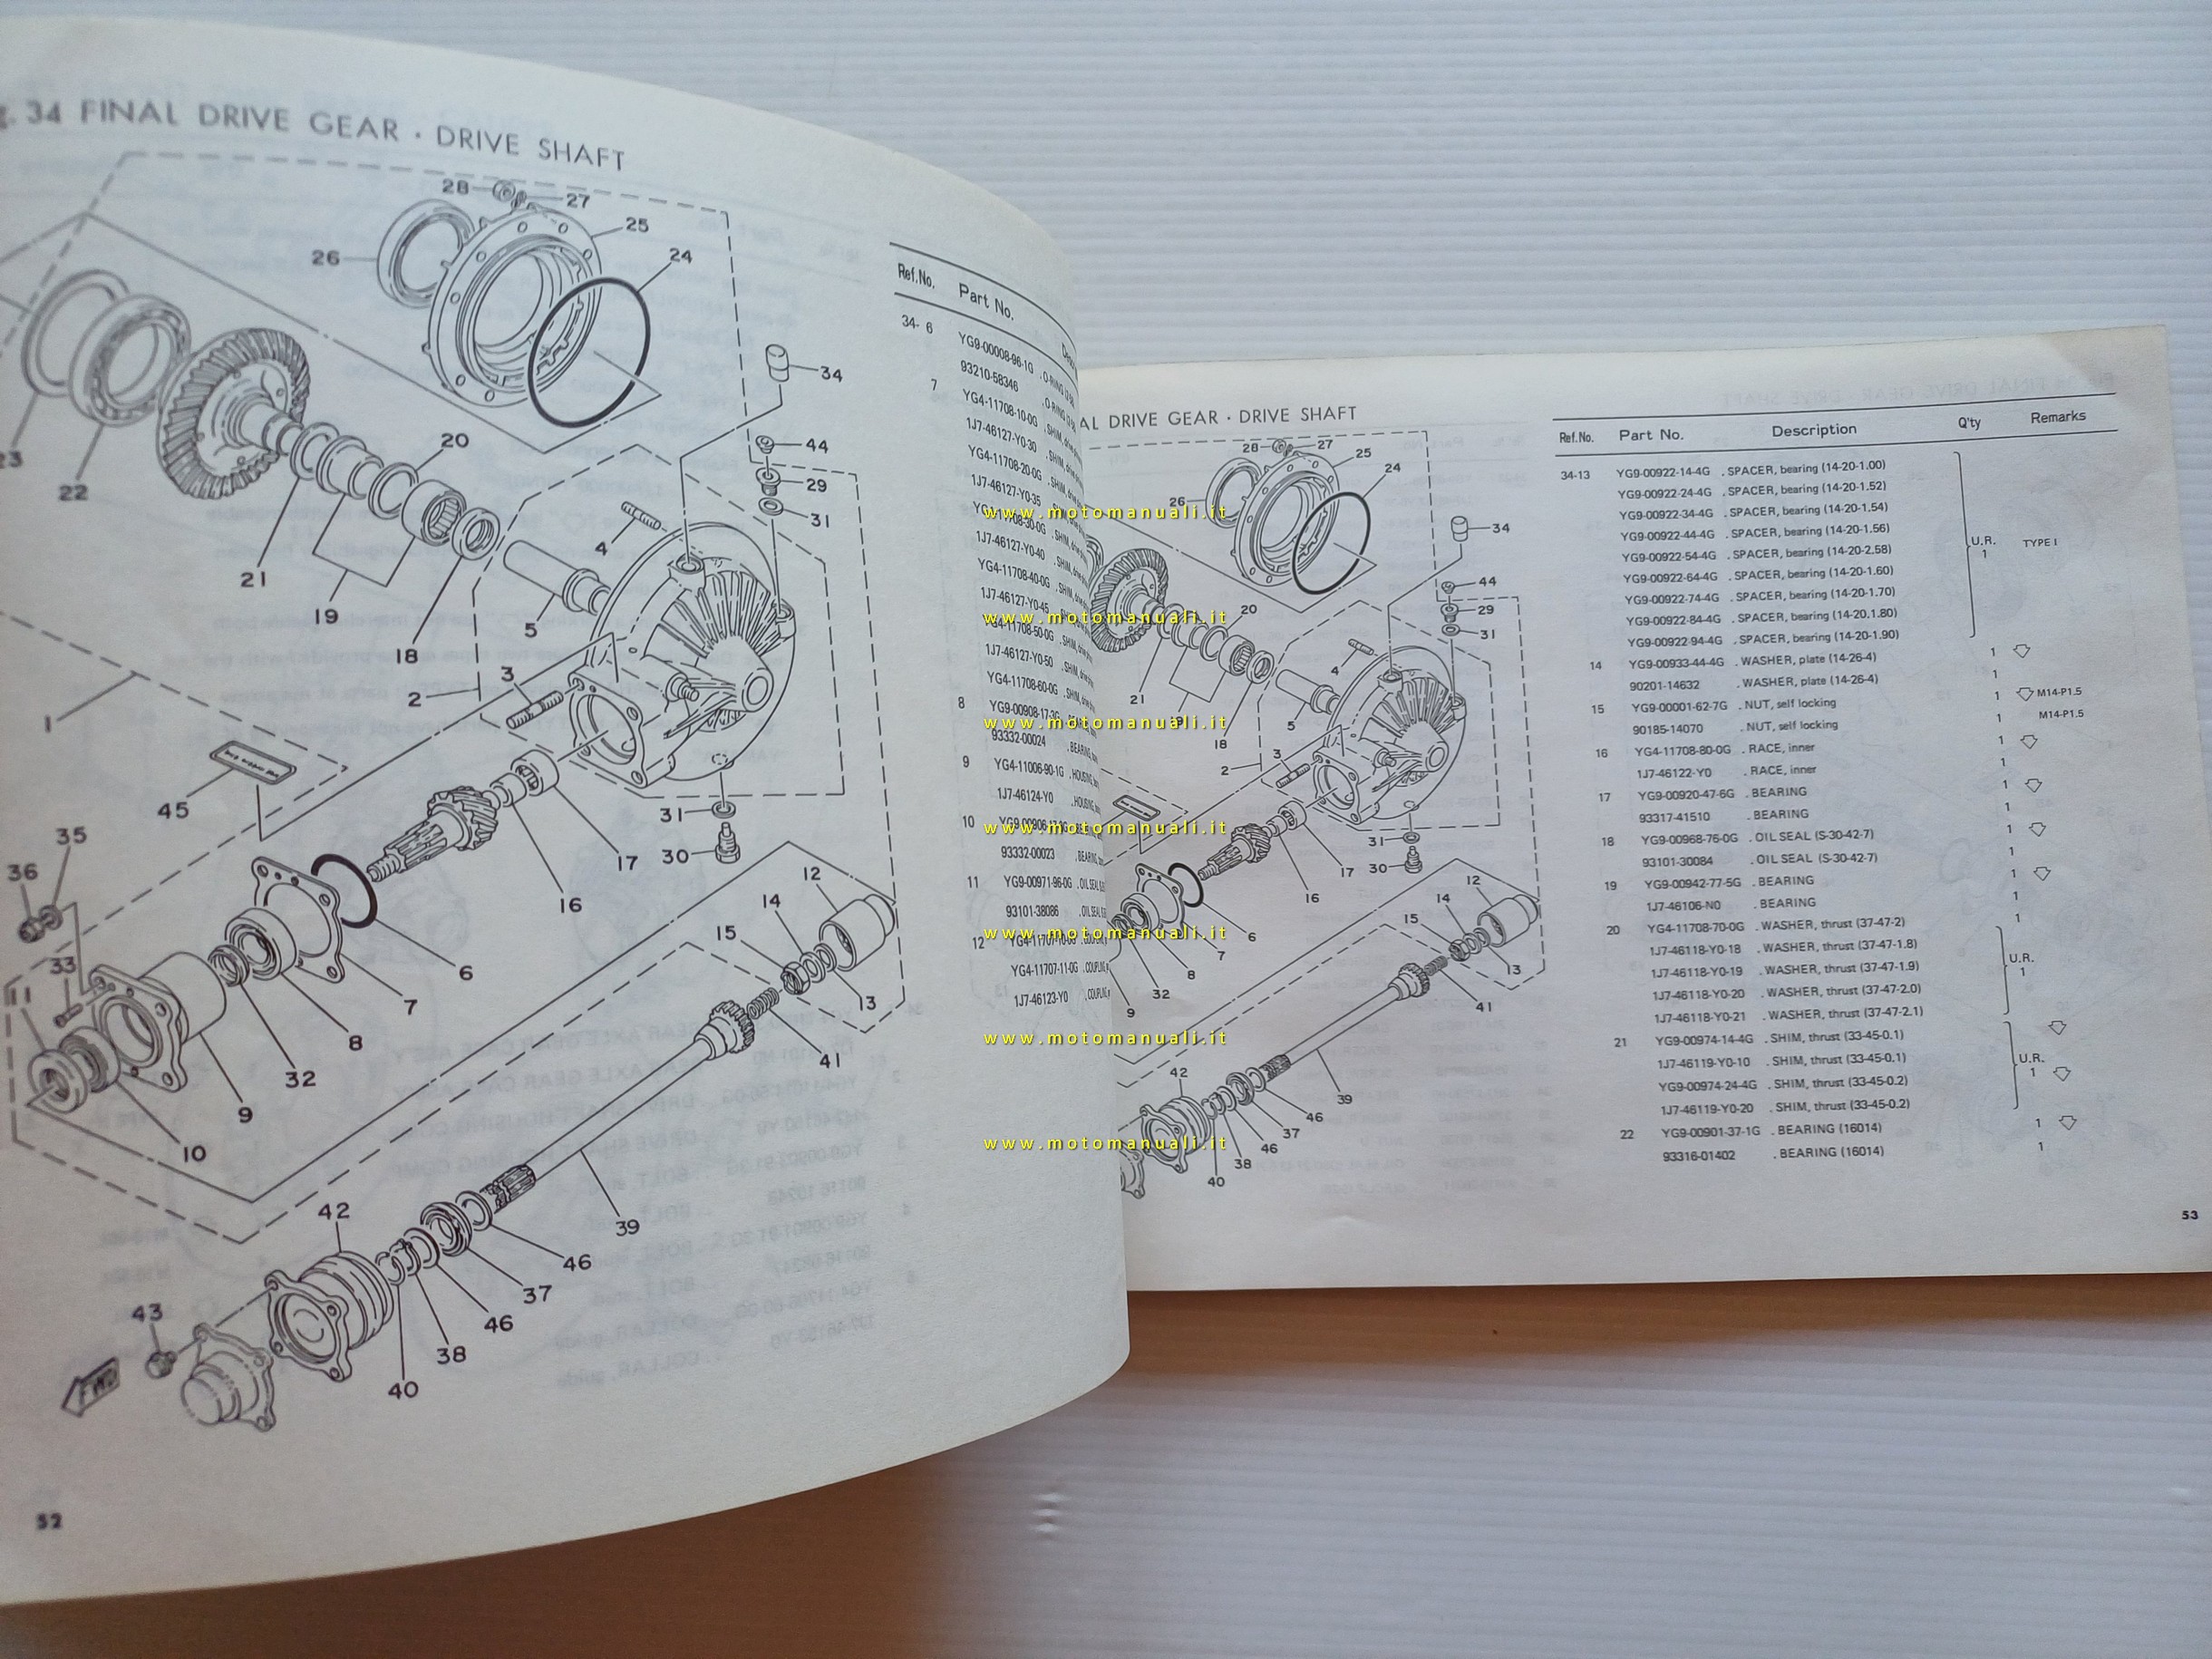 . 34 FINAL DRIVE GEAR · DRIVE SHAFT
28
27
25
26
24
34
20
44
23
22
29
31
4
21
19
5
18
3
2
1
45
31
17
30
35
16
36
12
14
6
15
33
7
11
13
8
41
32
9
10
39
42
46
37
46
43
38
40
FWD
52
Ref.No. Part No.
34- 6 YG9-00008-96-1G . O-RING
93210-58346 . O-RING
7 YG4-11708-10-0G . SHIM,
1J7-46127-Y0-30 . SHIM,
YG4-11708-20-0G . SHIM,
1J7-46127-Y0-35 . SHIM,
YG4-11708-30-0G . SHIM,
1J7-46127-Y0-40 . SHIM,
YG4-11708-40-0G . SHIM,
1J7-46127-Y0-45 . SHIM,
YG4-11708-50-0G . SHIM,
1J7-46127-Y0-50 . SHIM,
YG4-11708-60-0G . SHIM,
8 YG9-00908-17-3G . BEARING,
93332-00024 . BEARING,
9 YG4-11006-90-1G . HOUSING,
1J7-46124-Y0 . HOUSING,
10 YG9-00906-17-3G
93332-00023 . BEARING,
11 YG9-00971-96-0G . OIL SEAL
93101-38086 . OIL SEAL
12 YG4-11707-10-0G . COUPLING
YG4-11707-11-0G . COUPLING
1J7-46123-Y0 . COUPLING
AL DRIVE GEAR · DRIVE SHAFT
28
27
25
24
26
34
20
44
29
31
4
21
5
18
3
2
31
17
30
16
12
14
15
6
7
13
8
41
32
9
42
39
46
37
46
38
40
Ref.No. Part No. Description Q'ty Remarks
34-13 YG9-00922-14-4G . SPACER, bearing (14-20-1.00)
YG9-00922-24-4G . SPACER, bearing (14-20-1.52)
YG9-00922-34-4G . SPACER, bearing (14-20-1.54)
YG9-00922-44-4G . SPACER, bearing (14-20-1.56)
YG9-00922-54-4G . SPACER, bearing (14-20-2.58) U.R. 1 TYPE I
YG9-00922-64-4G . SPACER, bearing (14-20-1.60)
YG9-00922-74-4G . SPACER, bearing (14-20-1.70)
YG9-00922-84-4G . SPACER, bearing (14-20.1.80)
YG9-00922-94-4G . SPACER, bearing (14-20-1.90)
14 YG9-00933-44-4G . WASHER, plate (14-26-4) 1
90201-14632 . WASHER, plate (14-26-4) 1
15 YG9-00001-62-7G . NUT, self locking 1 M14-P1.5
90185-14070 . NUT, self locking 1 M14-P1.5
16 YG4-11708-80-0G . RACE, inner 1
1J7-46122-Y0 . RACE, inner 1
17 YG9-00920-47-6G . BEARING 1
93317-41510 . BEARING 1
18 YG9-00968-76-0G . OIL SEAL (S-30-42-7) 1
93101-30084 . OIL SEAL (S-30-42-7) 1
19 YG9-00942-77-5G . BEARING 1
1J7-46106-N0 . BEARING 1
20 YG4-11708-70-0G . WASHER, thrust (37-47-2) 1
1J7-46118-Y0-18 . WASHER, thrust (37-47-1.8)
1J7-46118-Y0-19 . WASHER, thrust (37-47-1.9) U.R. 1
1J7-46118-Y0-20 . WASHER, thrust (37-47-2.0)
1J7-46118-Y0-21 . WASHER, thrust (37-47-2.1)
21 YG9-00974-14-4G . SHIM, thrust (33-45-0.1)
1J7-46119-Y0-10 . SHIM, thrust (33-45-0.1) U.R. 1
YG9-00974-24-4G . SHIM, thrust (33-45-0.2)
1J7-46119-Y0-20 . SHIM, thrust (33-45-0.2)
22 YG9-00901-37-1G . BEARING (16014) 1
93316-01402 . BEARING (16014) 1
53
www.motomanuali.it
www.motomanuali.it
www.motomanuali.it
www.motomanuali.it
www.motomanuali.it
www.motomanuali.it
www.motomanuali.it